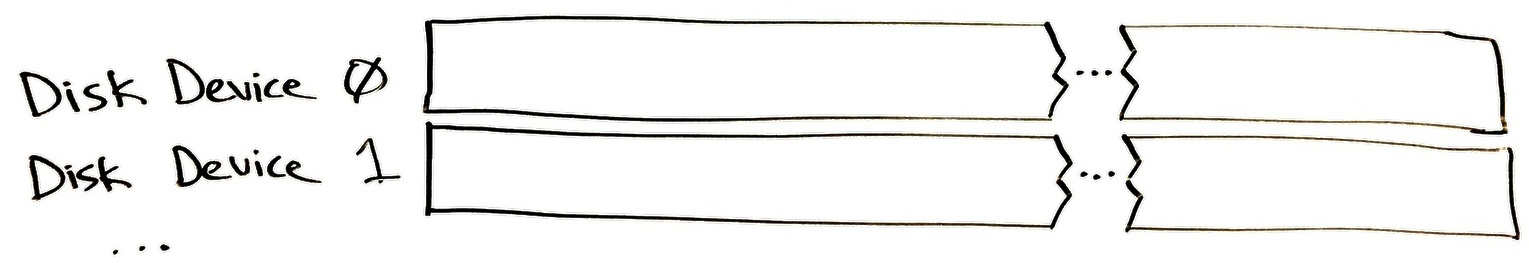 Disk Device 0 ...
Disk Device 1 ...
...